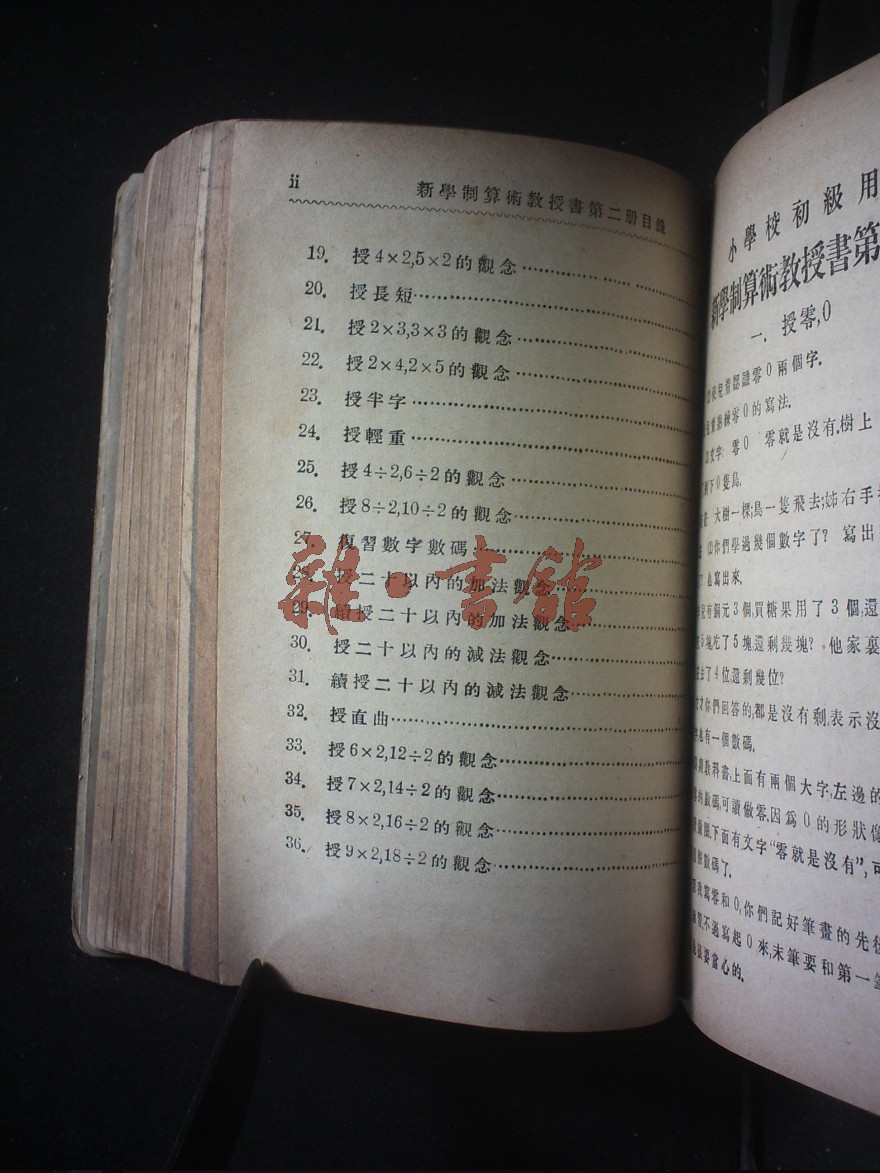 ii
新學制算術教授書第二册目錄
19. 授4×2,5×2的觀念
20. 授長短
21. 授2×3,3×3的觀念
22. 授2×4,2×5的觀念
23. 授半字
24. 授輕重
25. 授4÷2,6÷2的觀念
26. 授8÷2,10÷2的觀念
27. 復習數字數碼
28. 授二十以內的加法觀念
29. 續授二十以內的加法觀念
30. 授二十以內的減法觀念
31. 續授二十以內的減法觀念
32. 授直曲
33. 授6×2,12÷2的觀念
34. 授7×2,14÷2的觀念
35. 授8×2,16÷2的觀念
36. 授9×2,18÷2的觀念
雜·書館
小學校初級用
新學制算術教授書第
一. 授零,0
兒童認識零0兩個字.
練零0的寫法.
文字 零0 零就是沒有.樹上
下0隻鳥.
大樹一棵;鳥一隻飛去;姊右手
你們學過幾個數字了? 寫出
也寫出來.
有銅元3個,買糖果用了3個,還
5塊吃了5塊,還剩幾塊? 他家裏
去了4位,還剩幾位?
才你們回答的,都是沒有剩,表示沒
也有一個數碼.
教科書,上面有兩個大字,左邊的
的數碼,可讀做零,因爲0的形狀像
下面有文字“零就是沒有”,可
數碼了.
我寫零和0,你們記好筆畫的先後
不過寫起0來,末筆要和第一筆
要當心的.